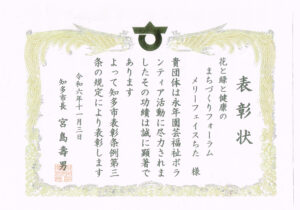 表彰状
花と緑と健康の
まちづくりフォーラム
メリーフェイスちた 様
貴団体は永年園芸福祉ボラ
ンティア活動に尽力されま
したその功績は誠に顕著で
あります
よって知多市表彰条例第三
条の規定により表彰します
令和六年十一月三日
知多市長 宮島壽男